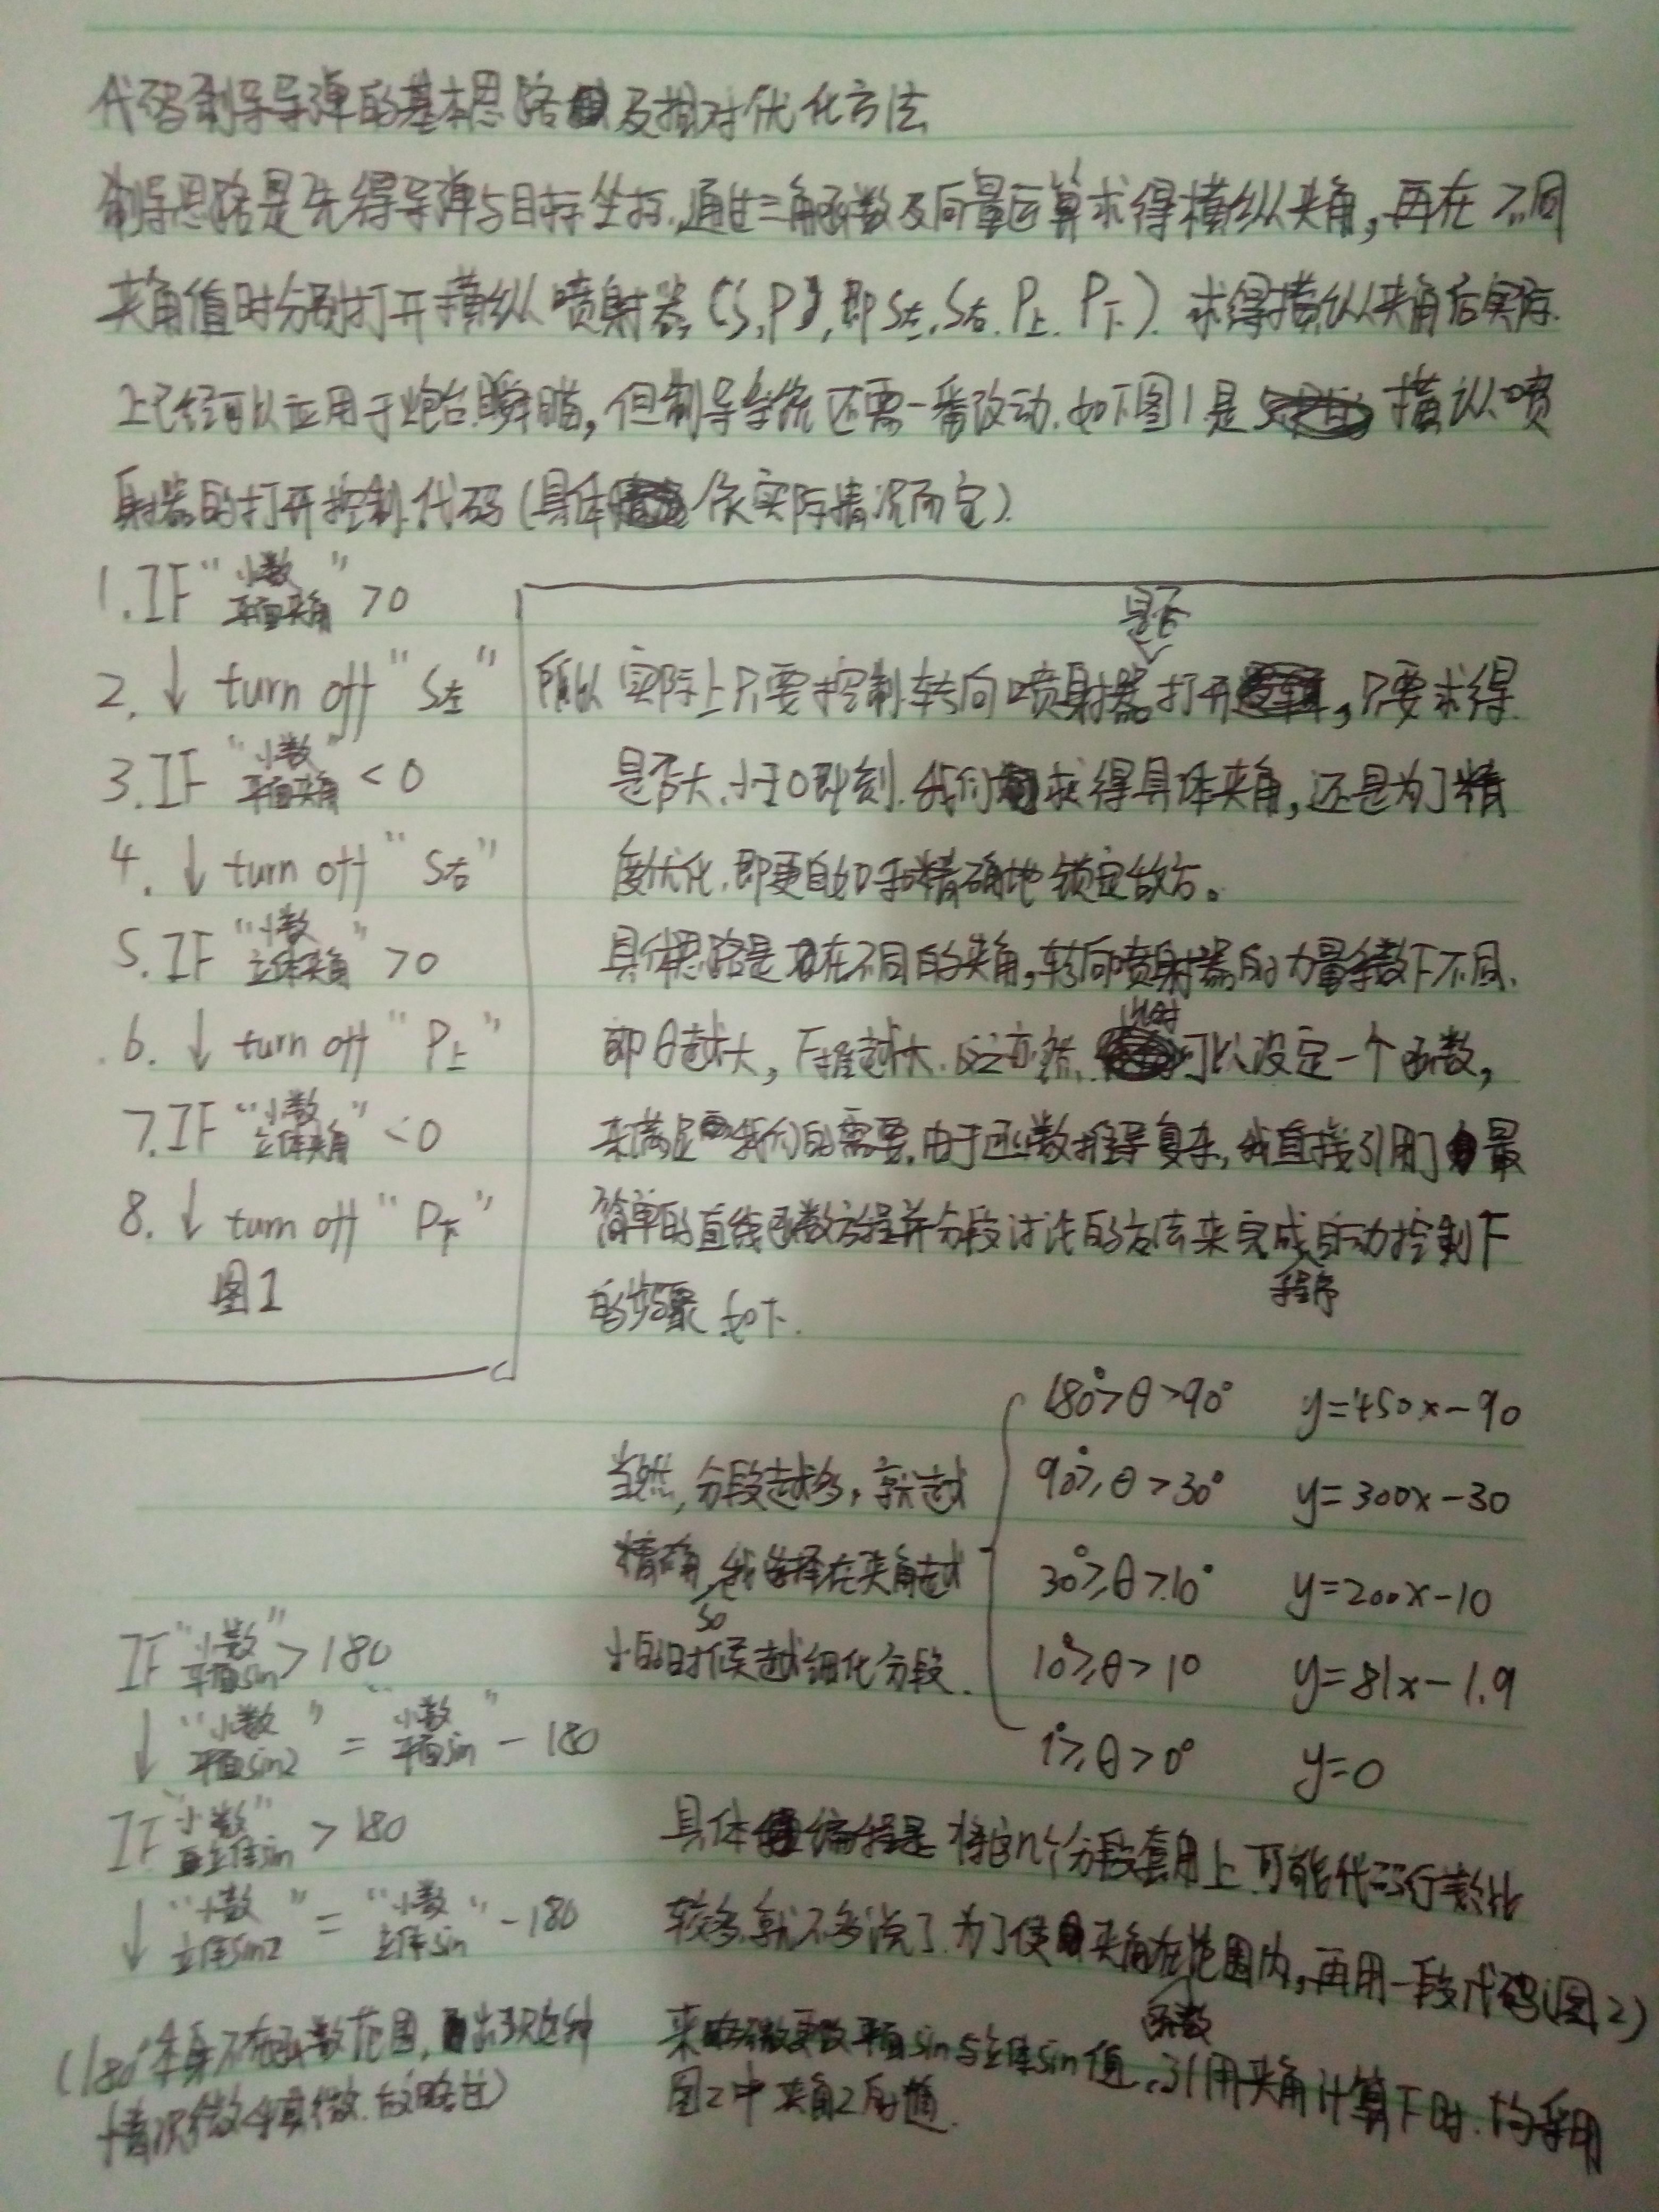 代码制导导弹的基本思路及相对优化方法
制导思路是先得导弹与目标坐标,通过三角函数及向量运算求得横纵夹角,再在不同
夹角值时分别打开横纵喷射器(S,P),即S左、S右、P上、P下).求得横纵夹角后实际
上已经可以应用于炮台瞬瞄,但制导系统还需一番改动.如下图1是横纵喷
射器的打开控制代码(具体依实际情况而定).
1.IF "小数平面夹角" >0
2.↓ turn off "S左"
3.IF "小数平面夹角" <0
4.↓ turn off "S右"
5.IF "小数立体夹角" >0
6.↓ turn off "P上"
7.IF "小数立体夹角" <0
8.↓ turn off "P下"
图1
所以实际上只要控制转向喷射器是否打开,只要求得
是否大、小于0即刻.我们求得具体夹角,还是为了精
度优化,即更自如和精确地锁定敌方。
具体思路是在不同的夹角,转向喷射器的力量系数F不同.
即θ越大,F推越大.反之亦然.此时可以设定一个函数,
来满足我们的需要.由于函数推导复杂,我直接引用了最
简单的直线函数方程并分段讨论的方法来完成自动控制F
程序
的步骤 如下.
180°>θ>90° y=450x-90
90°≥θ>30° y=300x-30
30°≥θ>10° y=200x-10
10°≥θ>1° y=81x-1.9
1°≥θ>0° y=0
当然,分段越多,就越
精确,so我选择在夹角越
小的时候越细化分段.
IF "小数平面sin" >180
↓ "小数平面sin2" = "小数平面sin" -180
IF "小数立体sin" >180
↓ "小数立体sin2" = "小数立体sin" -180
(180°本身不在函数范围,出现这种
情况微乎其微.故略过)
具体编程是将这n个分段套用上.可能代码行数比
较多,就不多说了.为了使夹角在函数范围内,再用一段代码(图2)
来略微更改平面sin与立体sin值.引用夹角计算F时.均采用
图2中夹角2的值.